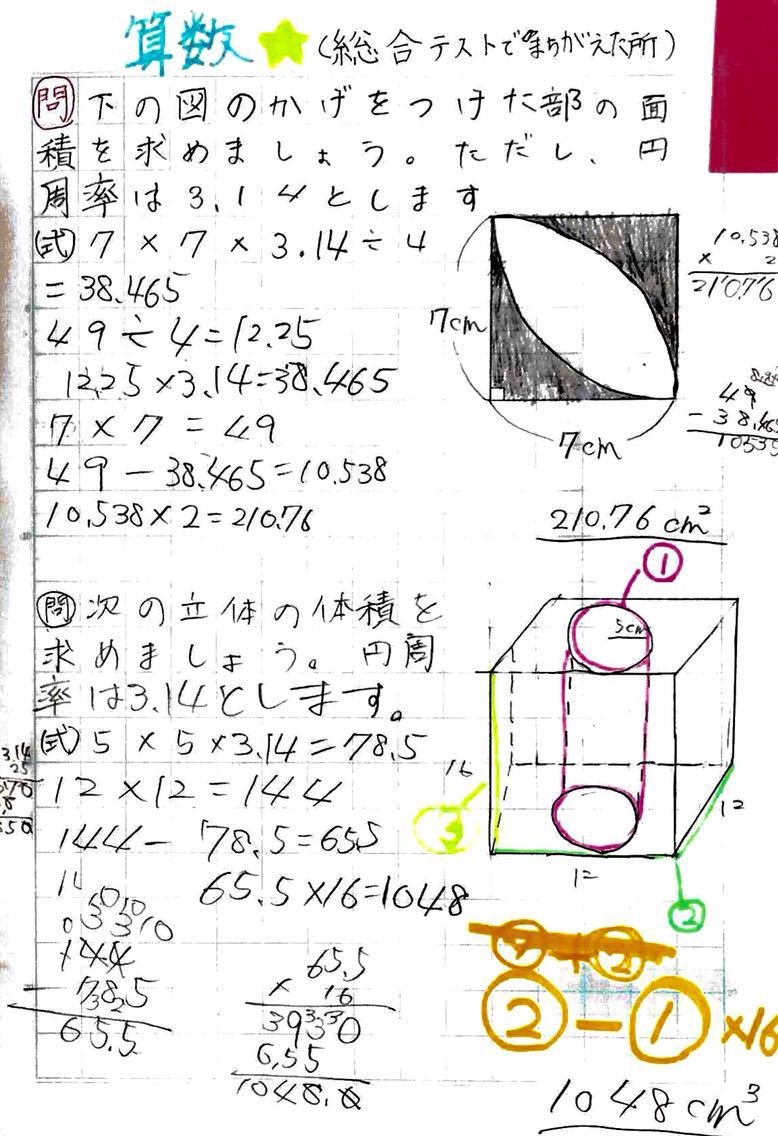 算数 (総合テストでまちがえた所)
問 下の図のかげをつけた部の面
積を求めましょう。ただし、円
周率は3.14とします
(式) 7×7×3.14÷4
=38.465
49÷4=12.25
12.25×3.14=38.465
7×7=49
49-38.465=10.538
10.538×2=210.76
7cm
7cm
10.538
× 2
210.76
49
-38.465
210.76cm²
問 次の立体の体積を
求めましょう。円周
率は3.14とします。
(式) 5×5×3.14=78.5
12×12=144
144-78.5=65.5
65.5×16=1048
① 
5cm
16
③
12
12
②
144
-78.5
65.5
65.5
× 16
3930
655
1048.0
②-①×16
1048cm³